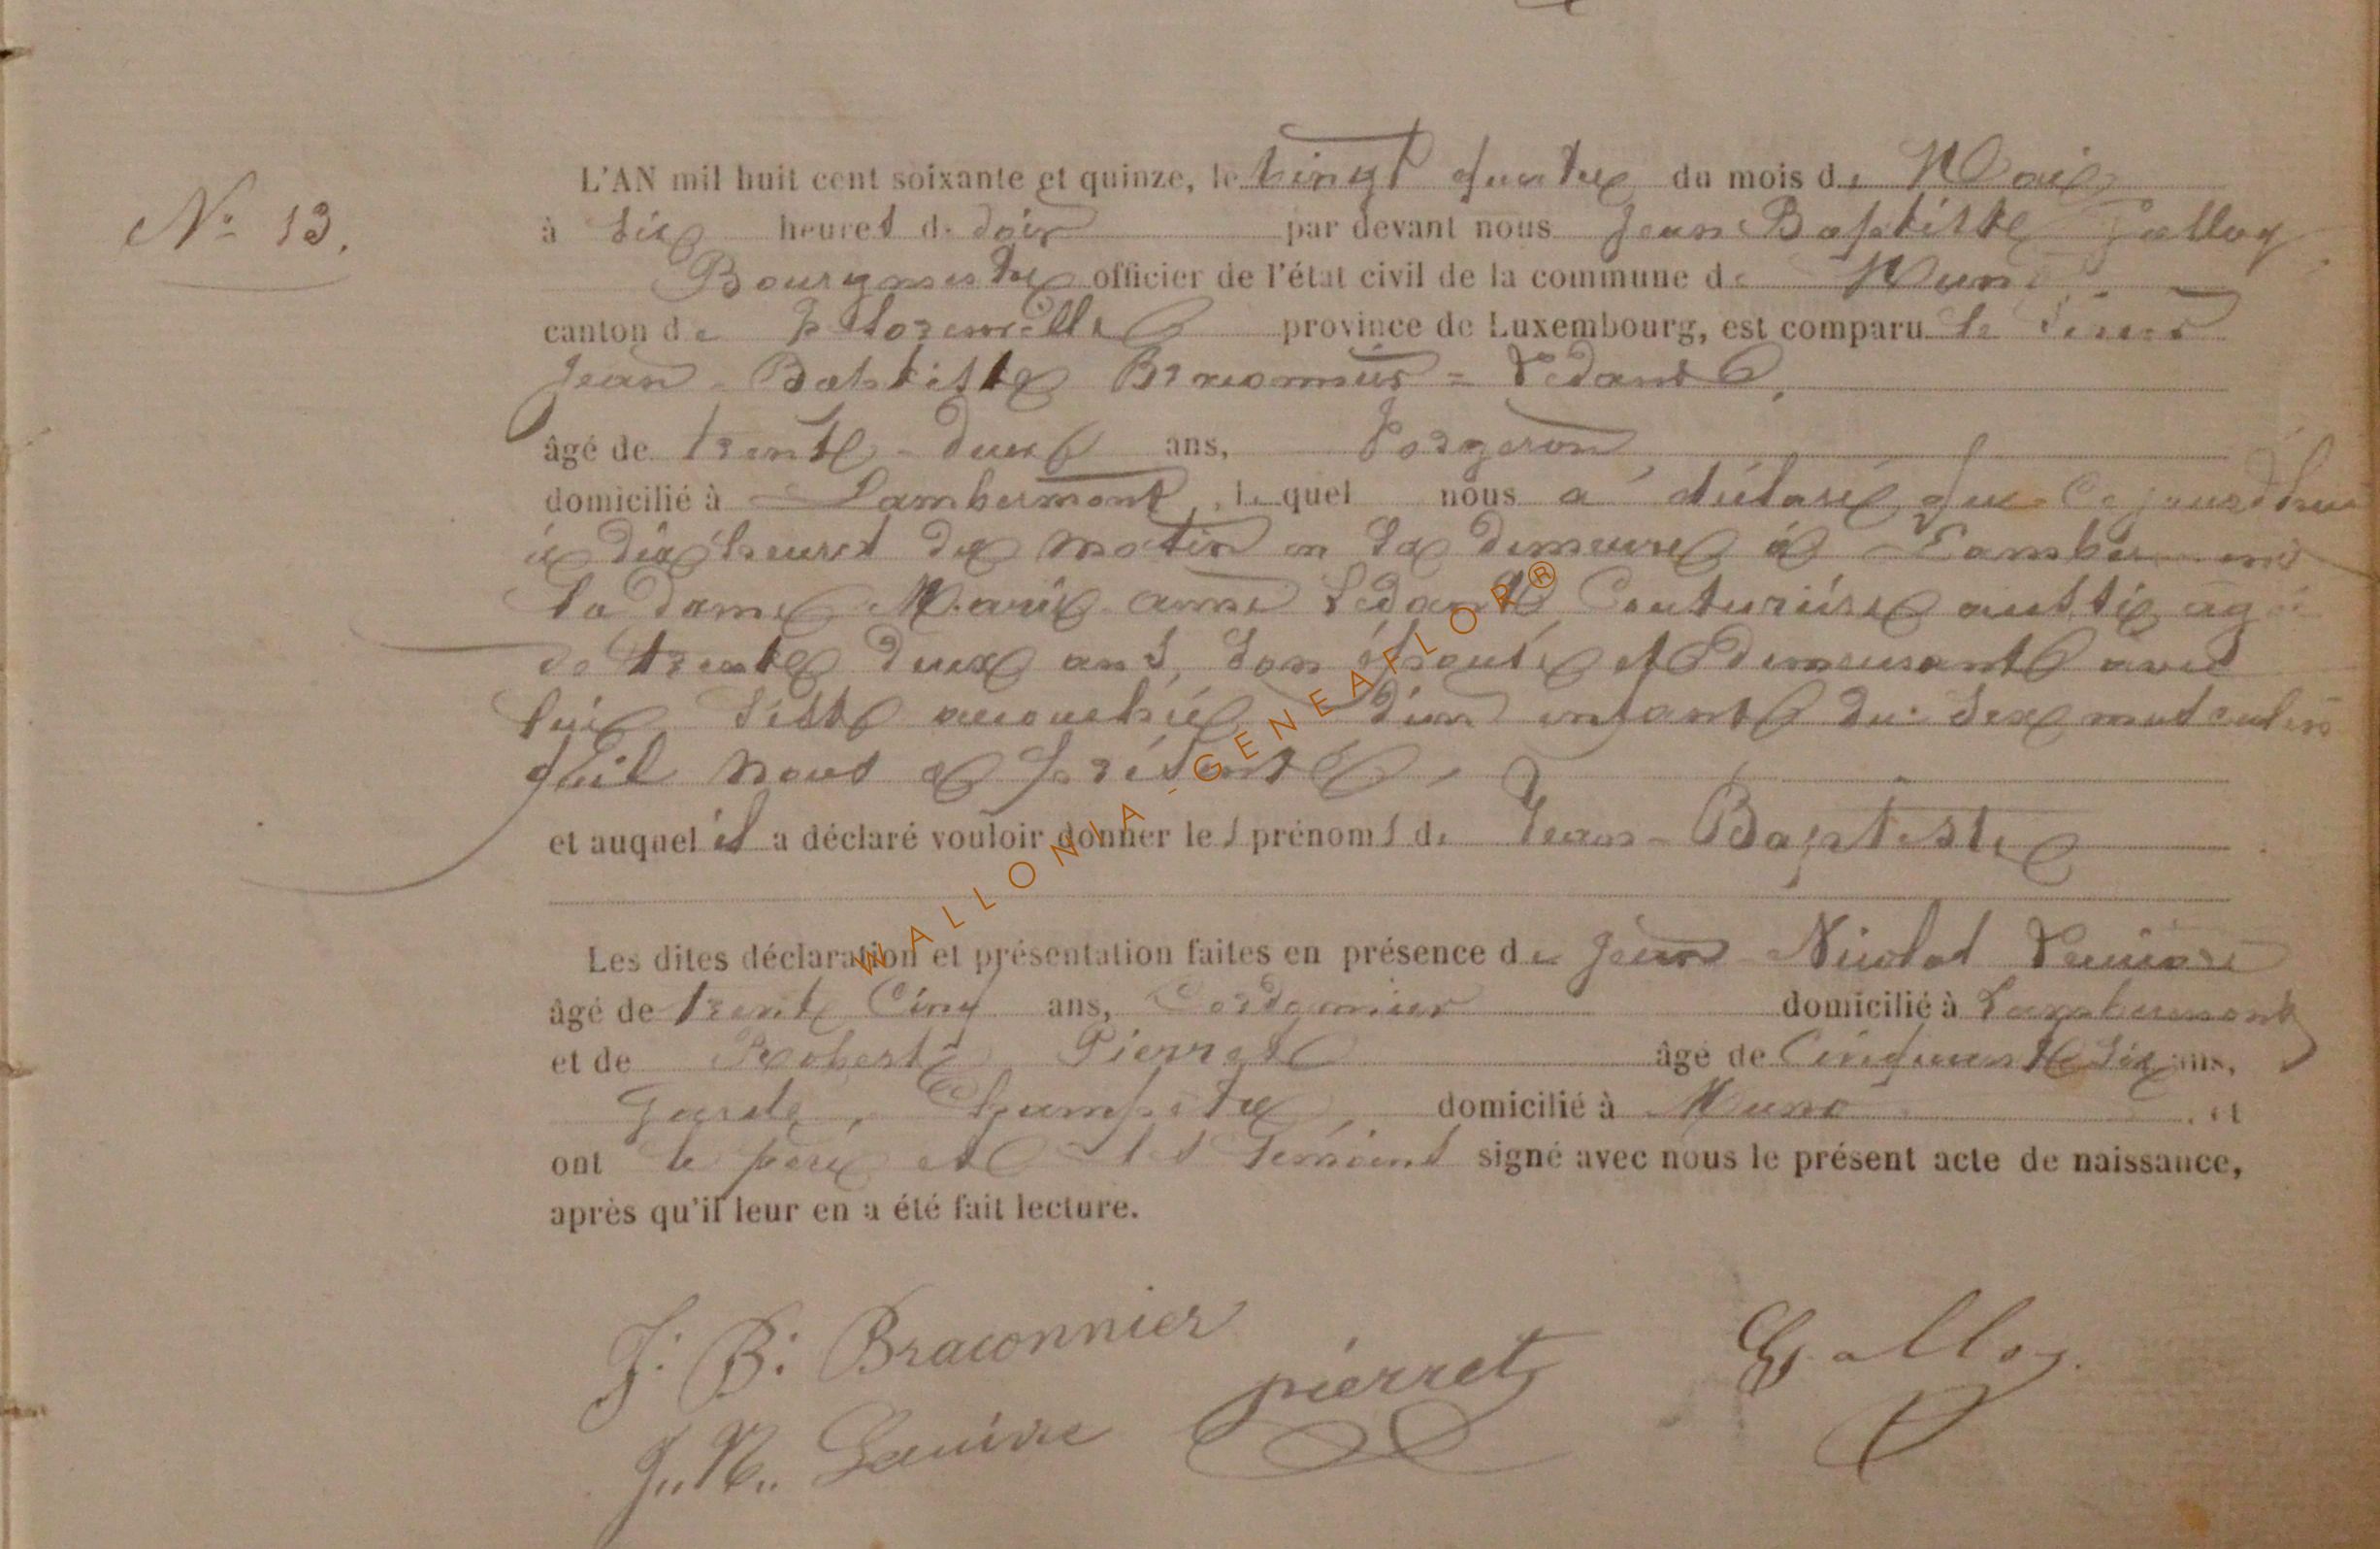 N° 13.
L'AN mil huit cent soixante et quinze, le vingt quatre du mois de Mai
à six heures du soir par devant nous Jean Baptiste Galloy
Bourgmestre officier de l'état civil de la commune de Muno
canton de Florenville province de Luxembourg, est comparu le sieur
Jean-Baptiste Braconnier = Ledant,
âgé de trente-deux ans, Forgeron
domicilié à Lambermont, lequel nous a déclaré que ce jourd'hui
à dix heures du matin en sa demeure à Lambermont
la dame Marie anne Ledant Couturière aussi agée
de trente deux ans, son épouse et demeurant avec
lui s'est accouchée d'un enfant du sexe masculin
qu'il nous a présenté,
et auquel il a déclaré vouloir donner les prénoms de Jean-Baptiste
Les dites déclaration et présentation faites en présence de Jean Nicolas
âgé de trente Cinq ans, Cordonnier domicilié à Lambermont
et de Robert Pierret âgé de Cinquante six ans,
garde, Champêtre, domicilié à Muno, et
ont le père et les témoins signé avec nous le présent acte de naissance,
après qu'il leur en a été fait lecture.
J: B: Braconnier
pierret
Galloy
J.. N..
WALLONIA - GENEAFLOR ®